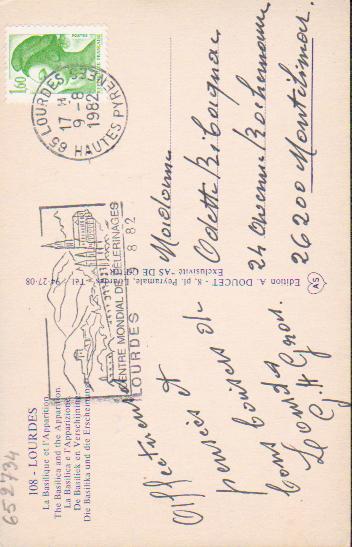 108 - LOURDES
La Basilique et l'Apparition
The Basilica and the Apparition
La Basilica e l'Apparizione
De Basiliek en Verschijning
Die Basilika und die Erscheinung
Affectueuses
pensées et
bons baisers de
Lourdes
CENTRE MONDIAL DE PELERINAGES
LOURDES
8 82
65 LOURDES
17 H
9 -8
1982
HAUTES PYRENEES
1,60
Edition A. DOUCET - 8, pl. Peyramale, Lourdes - Tél. 94-27-08
Exclusivité "AS DE CŒUR"
AS
Madame
Odette
24 avenue Rochemaure
26200 Montélimar
652734